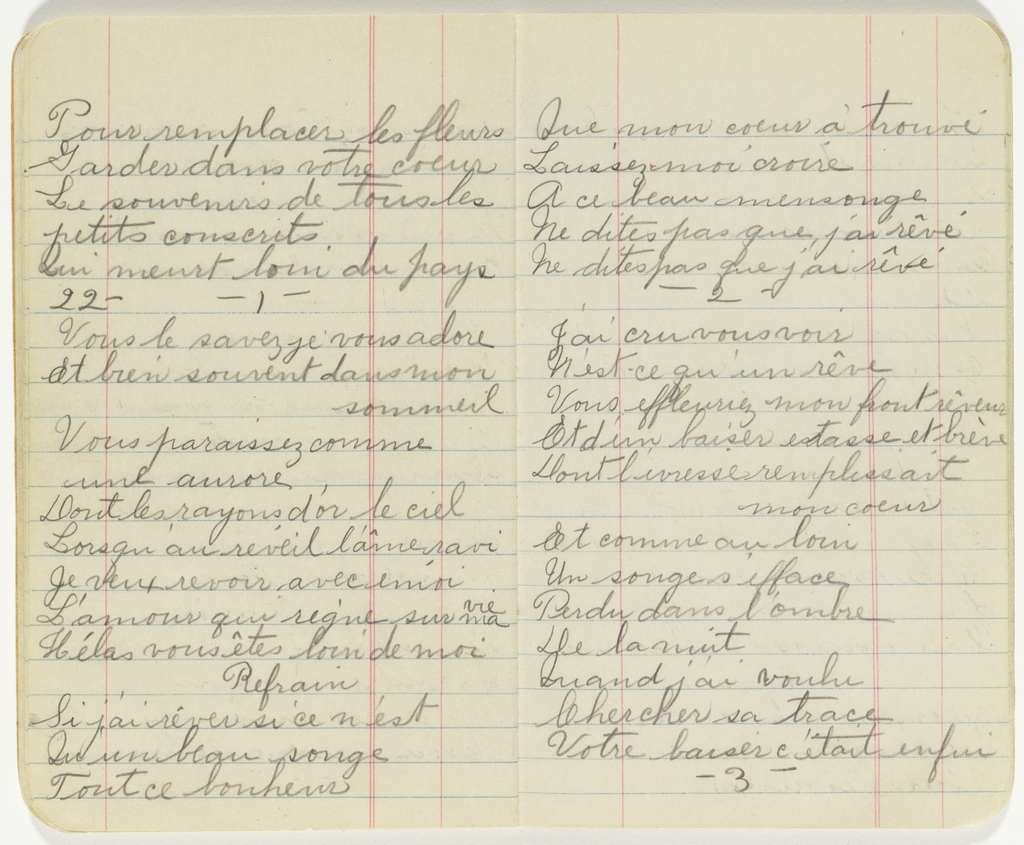 Pour remplacer les fleurs
Garder dans votre coeur
Le souvenirs de tous les
petits conscrits
Qui meurt loin du pays
22- -1-
Vous le savez je vous adore
Et bien souvent dans mon
sommeil
Vous paraissez comme
une aurore
Dont les rayons d'or le ciel
Lorsqu'au réveil l'âme ravi
Je veux revoir avec émoi
L'amour qui règne sur ma vie
Hélas vous êtes loin de moi
Refrain
Si j'ai rêver si ce n'est
Qu'un beau songe
Tout ce bonheur
Que mon coeur à trouvé
Laissez-moi croire
A ce beau mensonge
Ne dites pas que j'ai rêvé
Ne dites pas que j'ai rêvé
-2-
J'ai cru vous voir
N'est-ce qu'un rêve
Vous effleuriez mon front rêveur
Et d'un baiser estasse et brève
Dont l'ivresse remplissait
mon coeur
Et comme au loin
Un songe s'efface
Perdu dans l'ombre
De la nuit
Quand j'ai voulu
Chercher sa trace
Votre baiser c'était enfui
-3-